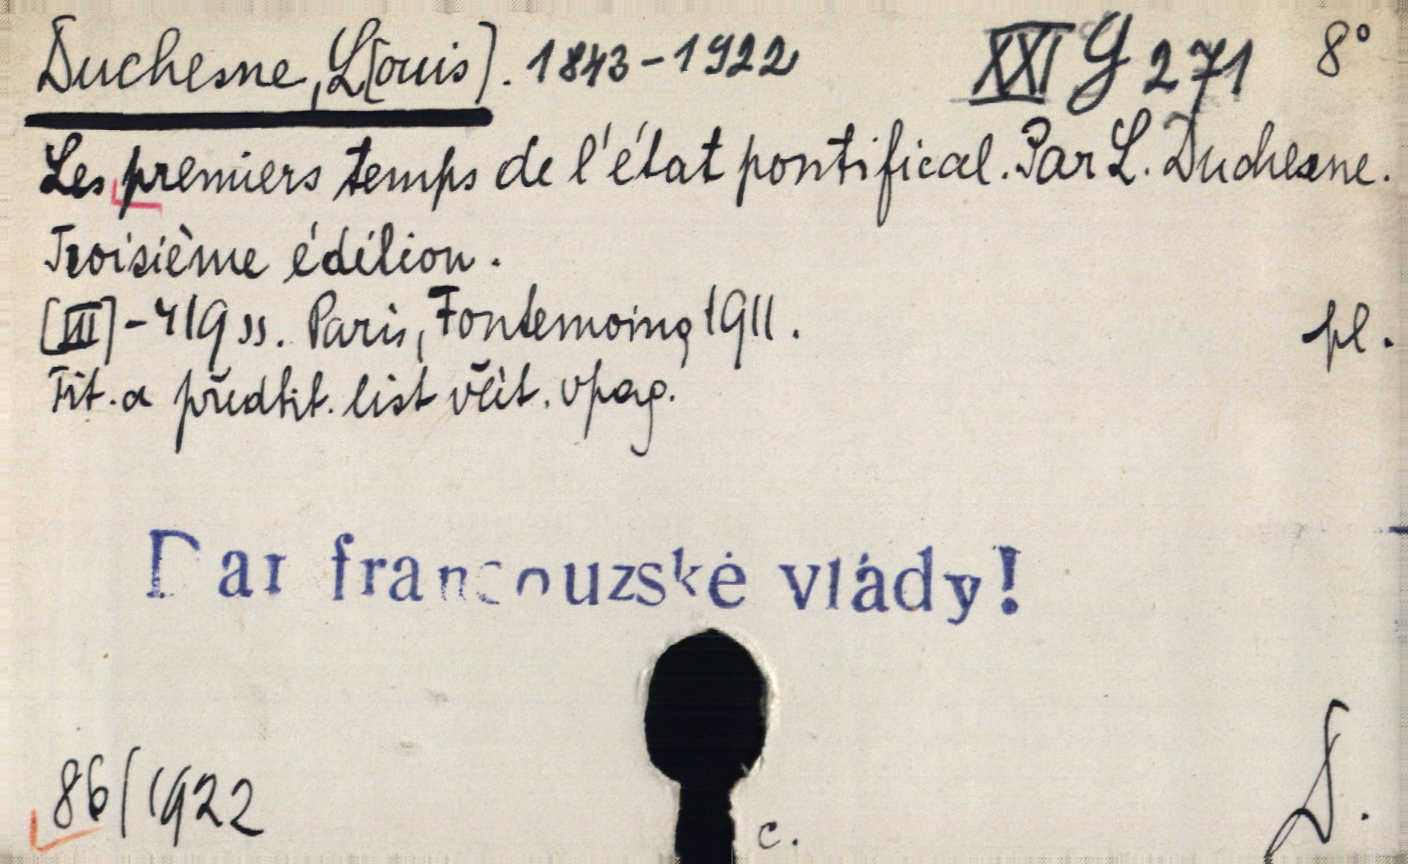 Duchesne, L[ouis]. 1843-1922 XXI G 271 8°
Les premiers temps de l'état pontifical. Par L. Duchesne.
Troisième édition.
[III]-419 ss. Paris, Fontemoing 1911. pl.
Tit. a předtit. list včít. v pag.
Dar francouzské vlády!
86/1922
c.
D.